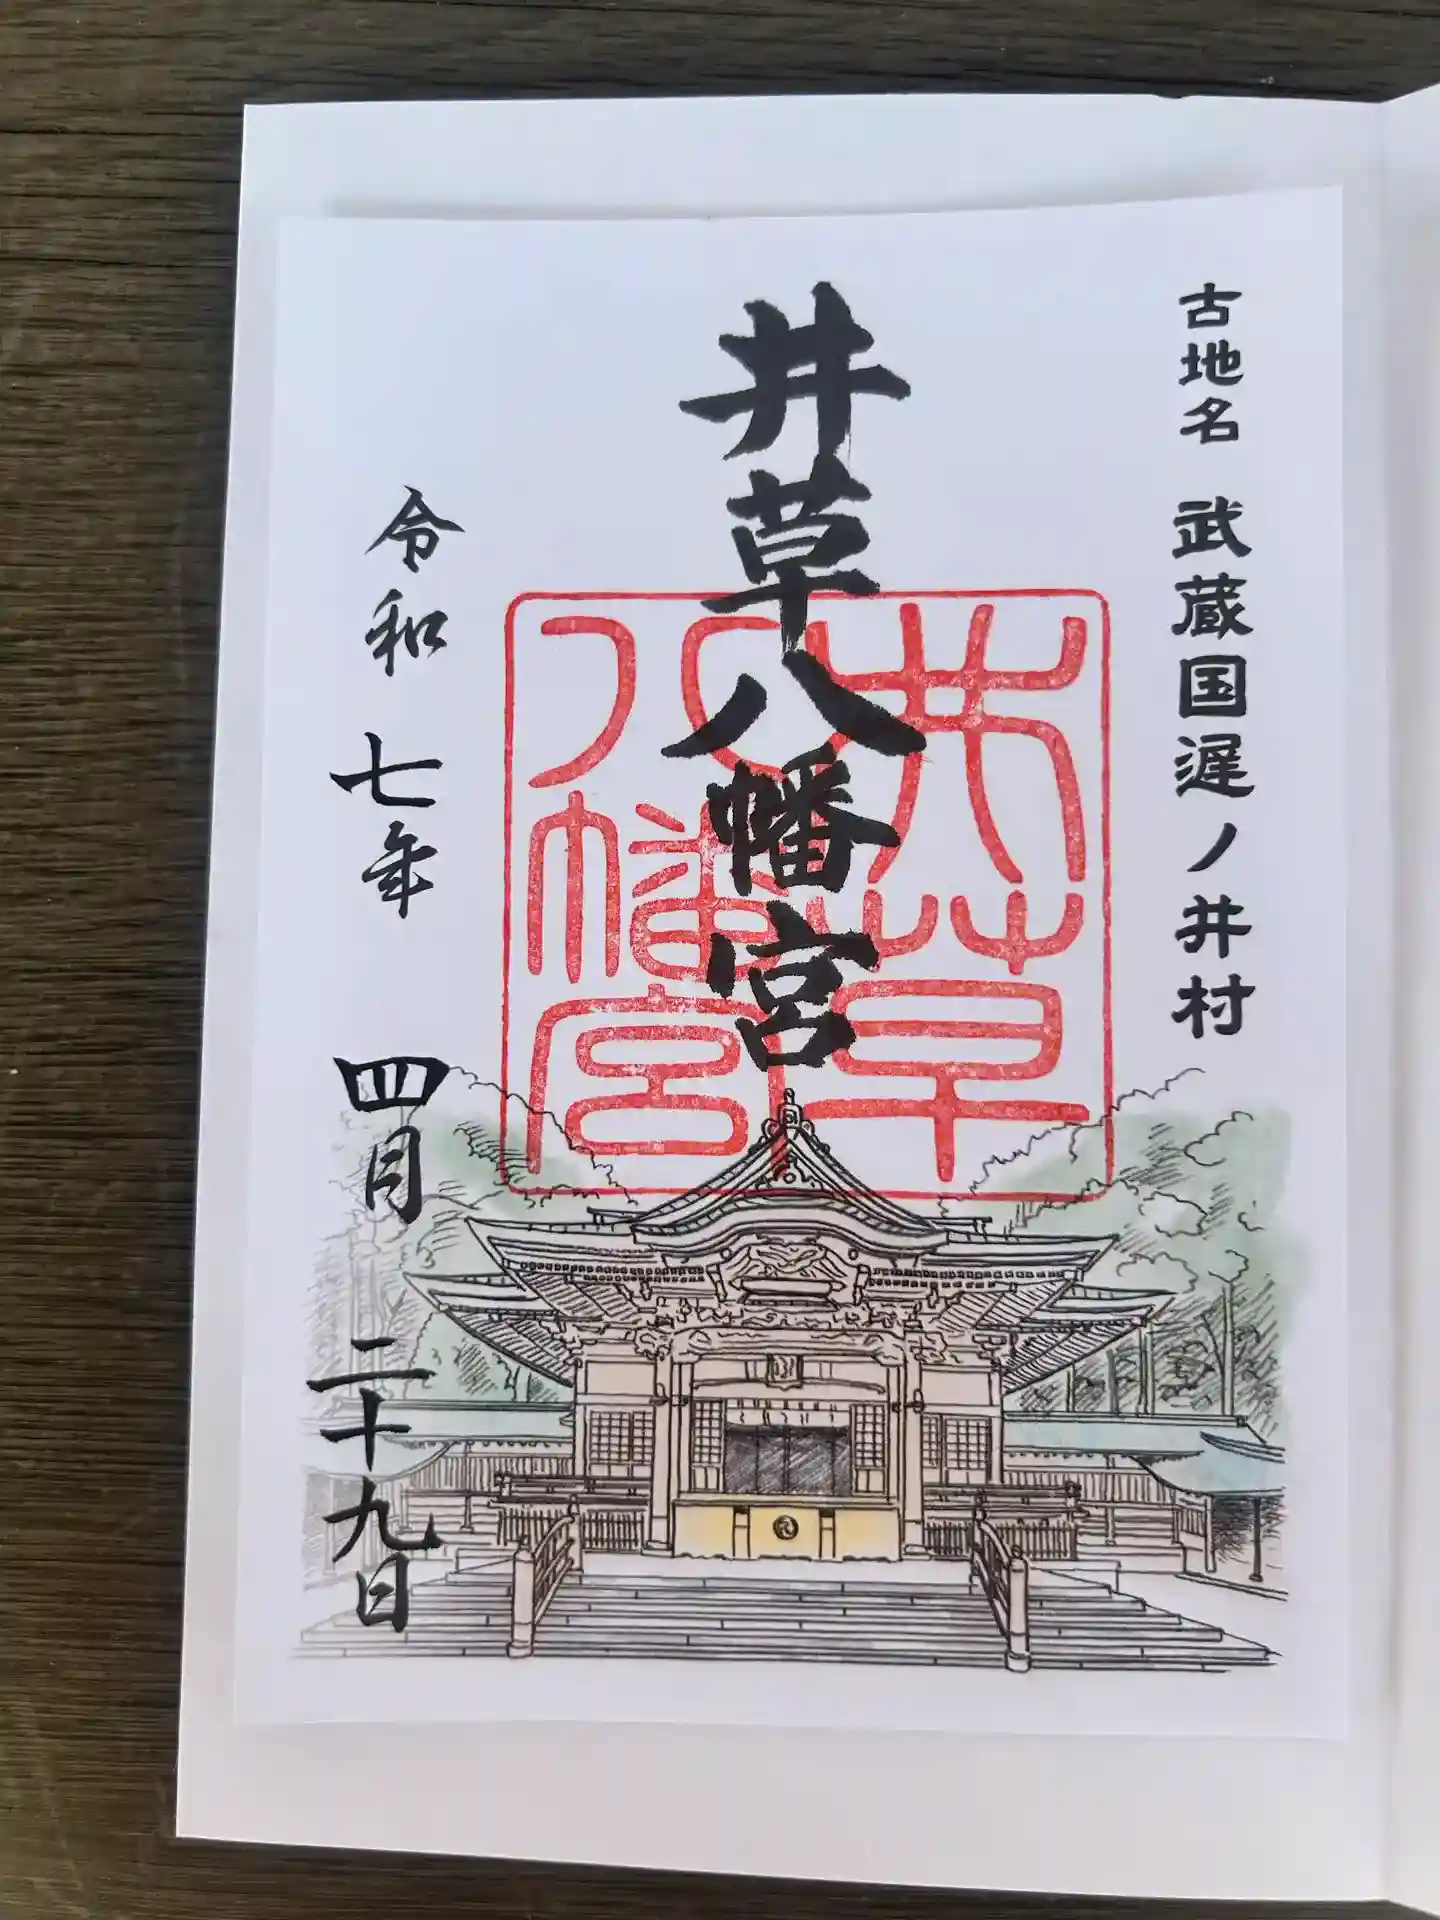 古地名 武蔵国遅ノ井村
井草八幡宮
井草
八幡宮
令和七年 四月 二十九日